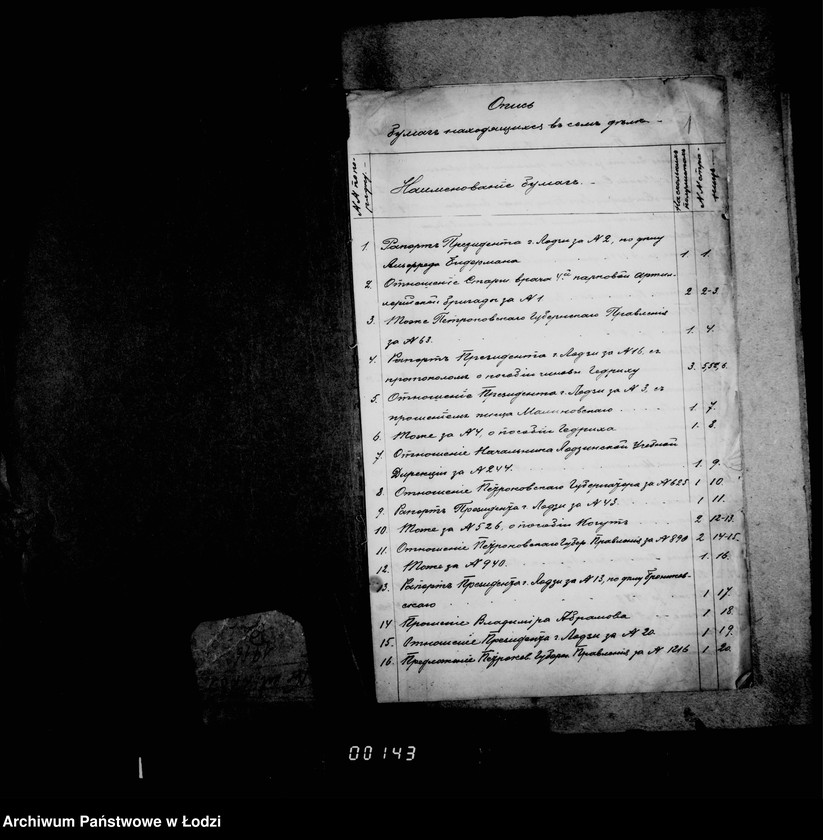 Опись
бумагъ находящихся въ семъ дѣлѣ.
1
№№ по по-
рядку.
Наименованіе бумагъ.
На сколькихъ
№№ стра-
ницъ.
1. Рапортъ Президента г. Лодзи за № 2, по дѣлу
Альфреда Бидермана 1 1.
2. Отношеніе Старш. врача 4й парковой артил-
лерійской бригады за № 1 2 2-3
3. Тоже Петроковскаго Губернскаго Правленія
за № 63. 1. 4.
4. Рапортъ Президента г. Лодзи за № 16, съ
протоколомъ о пособіи Гедриху 3.
5. Отношеніе Президента г. Лодзи за № 3, съ
прошеніемъ Малиновскаго 1 7.
6. Тоже за № 4, о пособіи Гедриха 1. 8.
7. Отношеніе Начальника Лодзинской Учебной
Дирекціи за № 244. 1. 9.
8. Отношеніе Петроковскаго Губернатора за № 625 1 10.
9. Рапортъ Президента г. Лодзи за № 43. 1 11.
10. Тоже за № 526, о пособіи Когутъ 2 12-13.
11. Отношеніе Петроковскаго Губер. Правленія за № 890 2 14-15.
12. Тоже за № 940. 1. 16.
13. Рапортъ Президента г. Лодзи за № 13, по дѣлу
скаго 1 17.
14 Прошеніе Владиміра Абрамова 1 18.
15. Отношеніе Президента г. Лодзи за № 20. 1 19.
16. Предложеніе Петроков. Губерн. Правленія за № 1216 1 20.
00143
Archiwum Państwowe w Łodzi